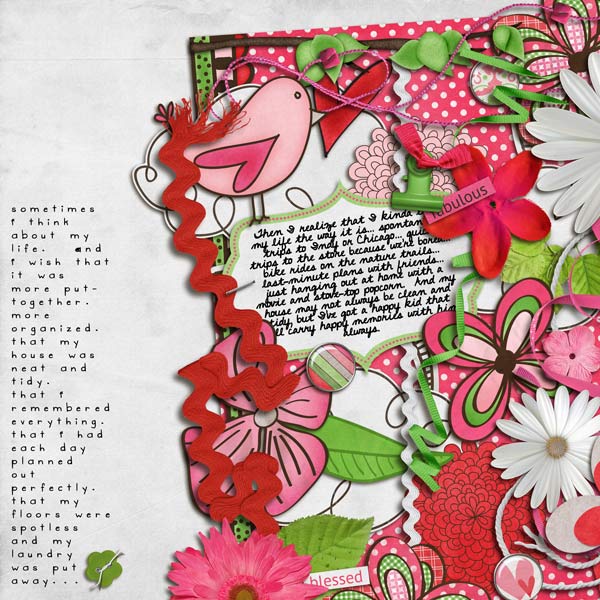 sometimes
i think
about my
life. and
i wish that
it was
more put-
together.
more
organized.
that my
house was
neat and
tidy.
that i
remembered
everything.
that i had
each day
planned
out
perfectly.
that my
floors were
spotless
and my
laundry
was put
away...
Then I realize that I kinda
my life the way it is... spontan
trips to Indy or Chicago...
trips to the store because we're bored...
bike rides on the nature trails...
last-minute plans with friends...
just hanging out at home with a
movie and stove-top popcorn. And my
house may not always be clean and
tidy, but I've got a happy kid that
will carry happy memories with him
always.
fabulous
blessed